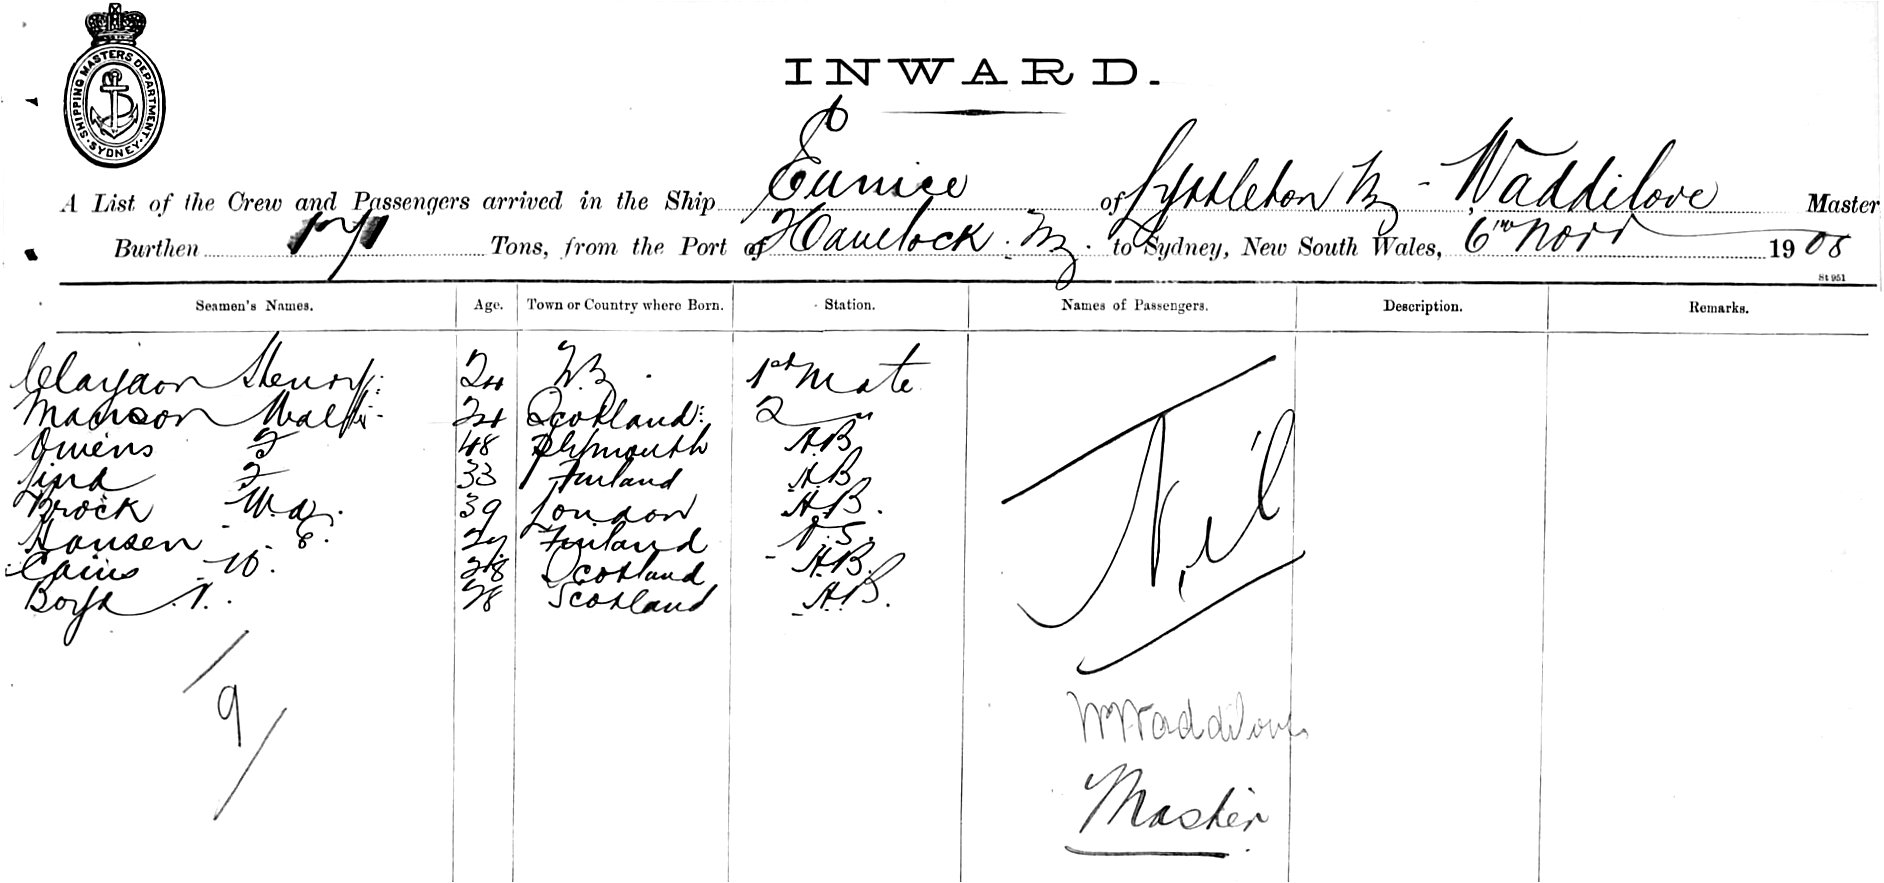 SHIPPING MASTERS DEPARTMENT · SYDNEY ·
INWARD.
A List of the Crew and Passengers arrived in the Ship Eunice of Lyttleton NZ - Waddilove Master
Burthen Tons, from the Port of Havelock. NZ. to Sydney, New South Wales, 6th Novr 1908
St 951
Seamen's Names. Age. Town or Country where Born. Station. Names of Passengers. Description. Remarks.
Claydon Henry 24 N.Z. 1st Mate
Manson Walter 24 Scotland 2 "
Owens F 48 Plymouth A.B
Lind F 33 Finland A.B
Brock W.a. 39 London A.B.
Hansen E. Finland O.S.
Cains W. 28 Scotland A.B.
Boyd 28 Scotland A.B.
Nil
9
W Waddilove
Master